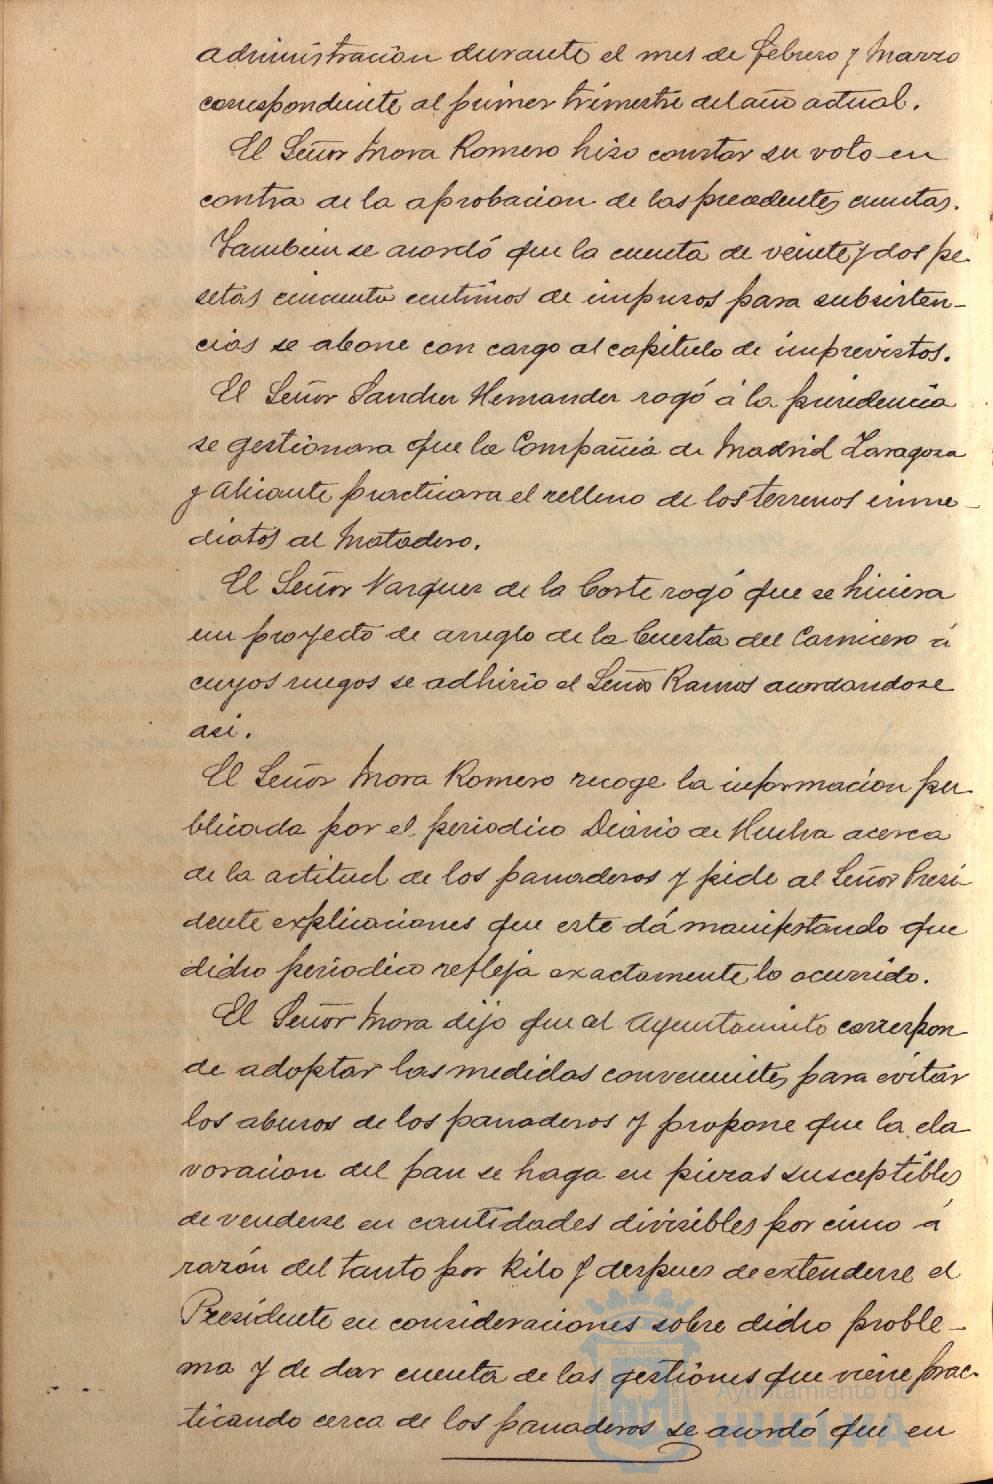 administracion durante el mes de Febrero y Marzo
correspondiente al primer trimestre del año actual.
El Señor Mora Romero hizo constar su voto en
contra de la aprobacion de las precedentes cuentas.
Tambien se acordó que la cuenta de veinte y dos pe-
setas cincuenta centimos de impresos para subsisten-
cias se abone con cargo al capitulo de imprevistos.
El Señor Sanchez Hernandez rogó á la presidencia
se gestionara que la Compañia de Madrid Zaragoza
y Alicante practicara el relleno de los terrenos inme-
diatos al Matadero.
El Señor Vazquez de la Corte rogó que se hiciera
un proyecto de arreglo de la Cuesta del Carnicero á
cuyos ruegos se adhirio el Señor Ramos acordandose
asi.
El Señor Mora Romero recoge la informacion pu-
blicada por el periodico Diario de Huelva acerca
de la actitud de los panaderos y pide al Señor Presi-
dente explicaciones que este dá manifestando que
dicho periodico refleja exactamente lo ocurrido.
El Señor Mora dijo que al Ayuntamiento correspon-
de adoptar las medidas convenientes para evitar
los abusos de los panaderos y propone que la ela-
voracion del pan se haga en piezas susceptibles
de venderse en cantidades divisibles por cinco á
razón del tanto por Kilo y despues de extenderse el
Presidente en consideraciones sobre dicho proble-
ma y de dar cuenta de las gestiones que viene prac-
ticando cerca de los panaderos se acordó que en
Ayuntamiento de
HUELVA